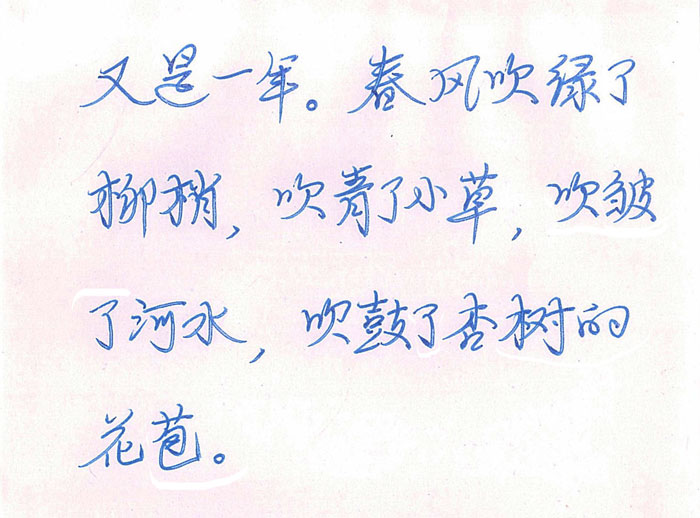 又是一年。春风吹绿了
柳梢，吹青了小草，吹皱
了河水，吹鼓了杏树的
花苞。